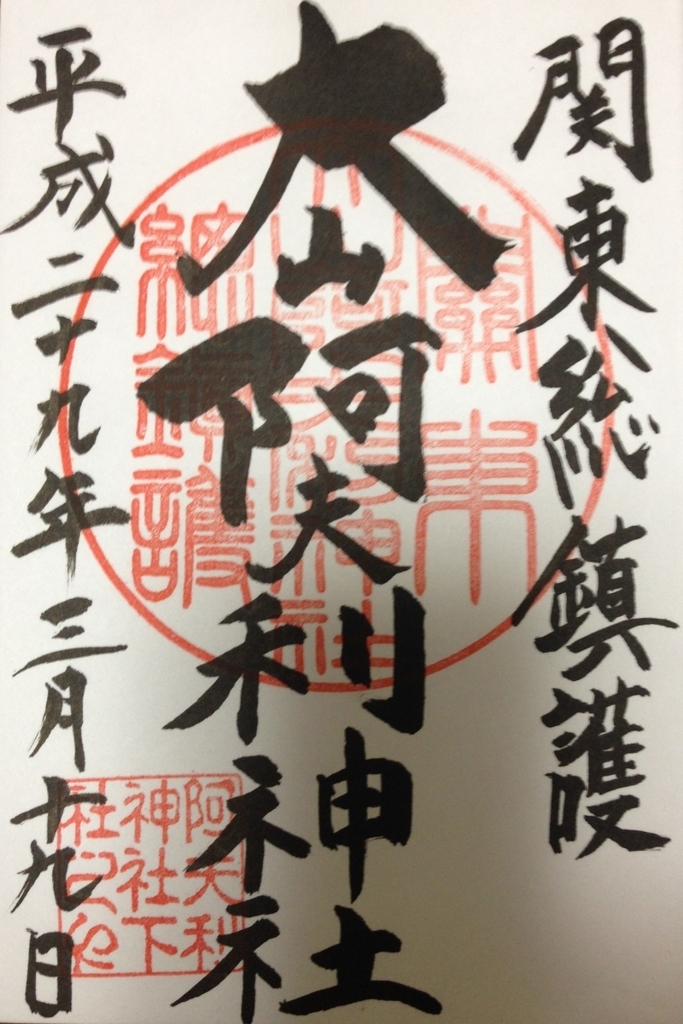 関東総鎮護
大山阿夫利神社
平成二十九年三月十九日
關東
大山阿夫利神社
總鎮護
阿夫利
神社下
社之印